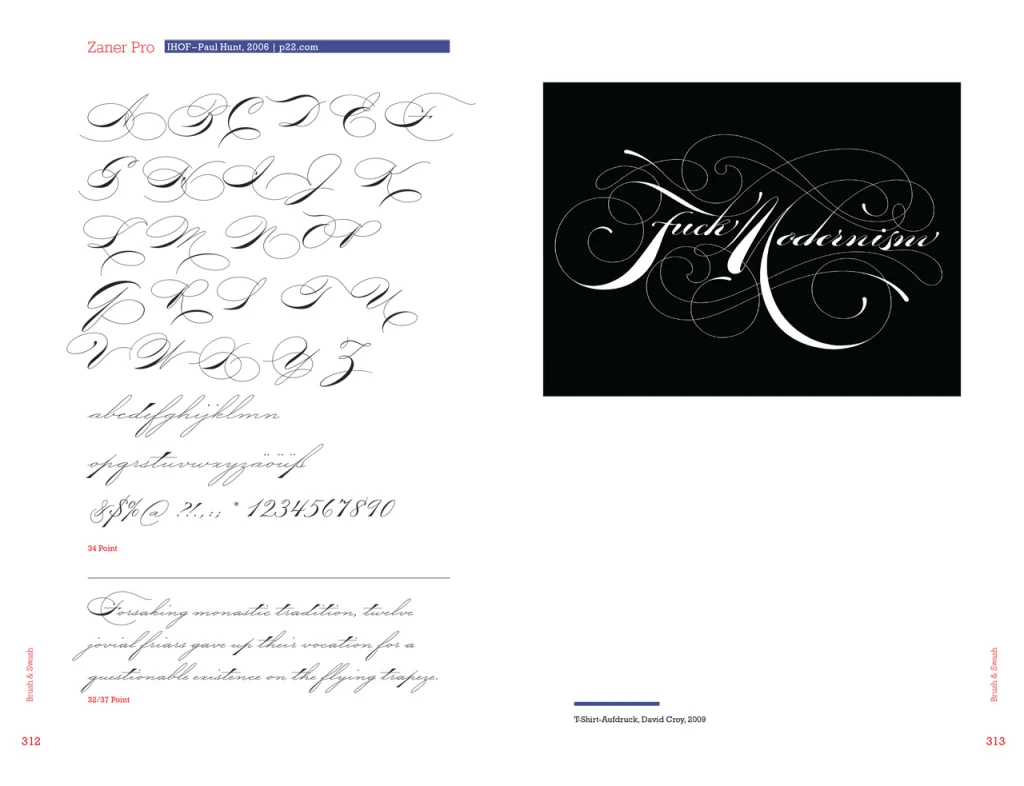 Zaner Pro
IHOF–Paul Hunt, 2006 | p22.com
A B C D E F
G H I J K
L M N O P
Q R S T U
V W X Y Z
abcdefghijklmn
opqrstuvwxyzäöüß
&$%@ ?!.,:; * 1234567890
34 Point
Forsaking monastic tradition, twelve
jovial friars gave up their vocation for a
questionable existence on the flying trapeze.
32/37 Point
Brush & Swash
312
Fuck Modernism
T-Shirt-Aufdruck, David Croy, 2009
Brush & Swash
313